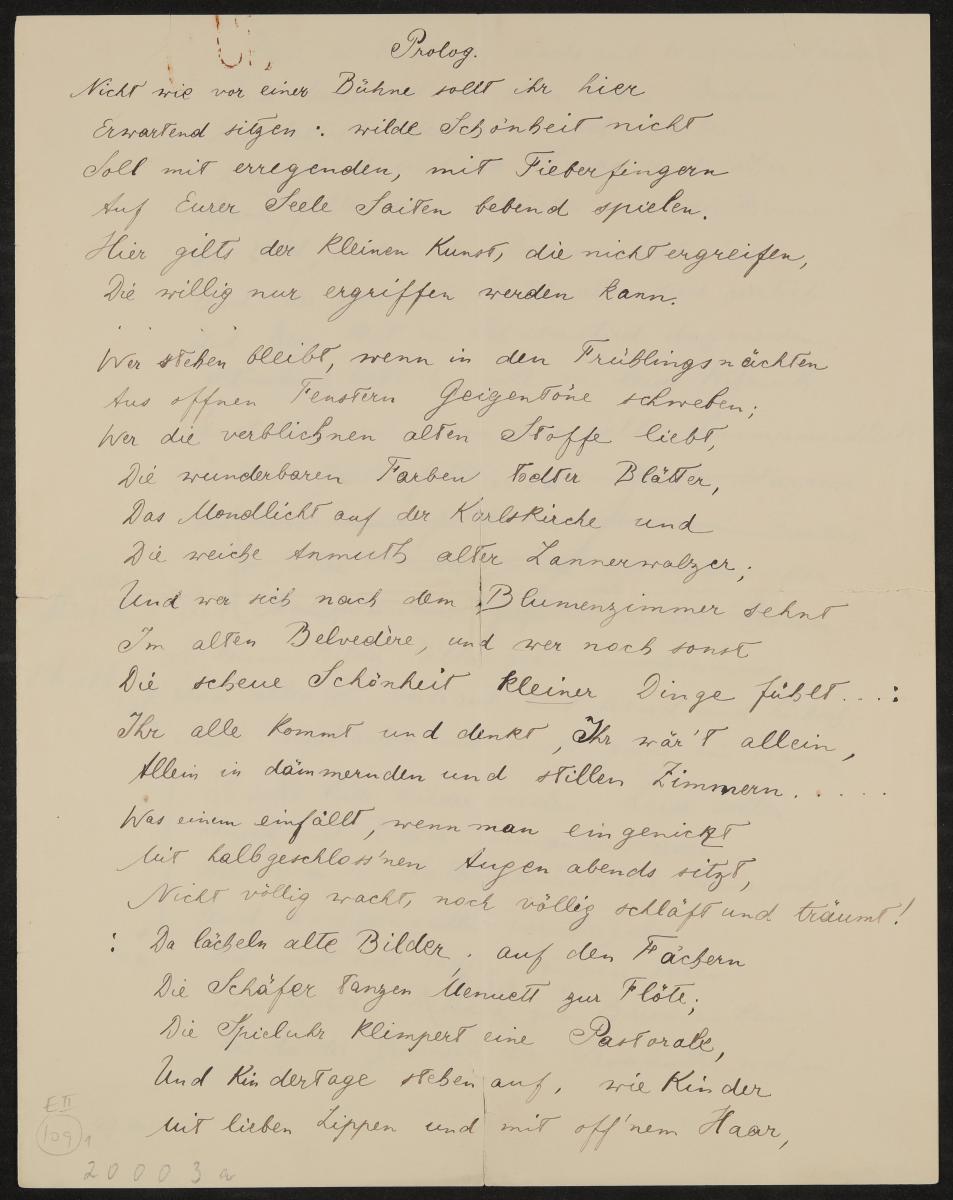 Prolog.
Nicht wie vor einer Bühne sollt ihr hier
Erwartend sitzen: wilde Schönheit nicht
Soll mit erregenden, mit Fieberfingern
Auf Eurer Seele Saiten bebend spielen.
Hier gilts der kleinen Kunst, die nicht ergreifen,
Die willig nur ergriffen werden kann.
. . . .
Wer stehen bleibt, wenn in den Frühlingsnächten
Aus offnen Fenstern Geigentöne schweben;
Wer die verblichnen alten Stoffe liebt,
Die wunderbaren Farben todter Blätter,
Das Mondlicht auf der Karlskirche und
Die weiche Anmuth alter Lannerwalzer;
Und wer sich nach dem Blumenzimmer sehnt
Im alten Belvedère, und wer noch sonst
Die scheue Schönheit kleiner Dinge fühlt...:
Ihr alle kommt und denkt, Ihr wär't allein,
Allein in dämmernden und stillen Zimmern.....
Was einem einfällt, wenn man eingenickt
Mit halbgeschloss'nen Augen abends sitzt,
Nicht völlig wacht, noch völlig schläft und träumt!
: Da lächeln alte Bilder, auf den Fächern
Die Schäfer tanzen Menuett zur Flöte;
Die Spieluhr klimpert eine Pastorale,
Und Kindertage stehen auf, wie Kinder
Mit lieben Lippen und mit off'nem Haar,
E II
109 1
20003a